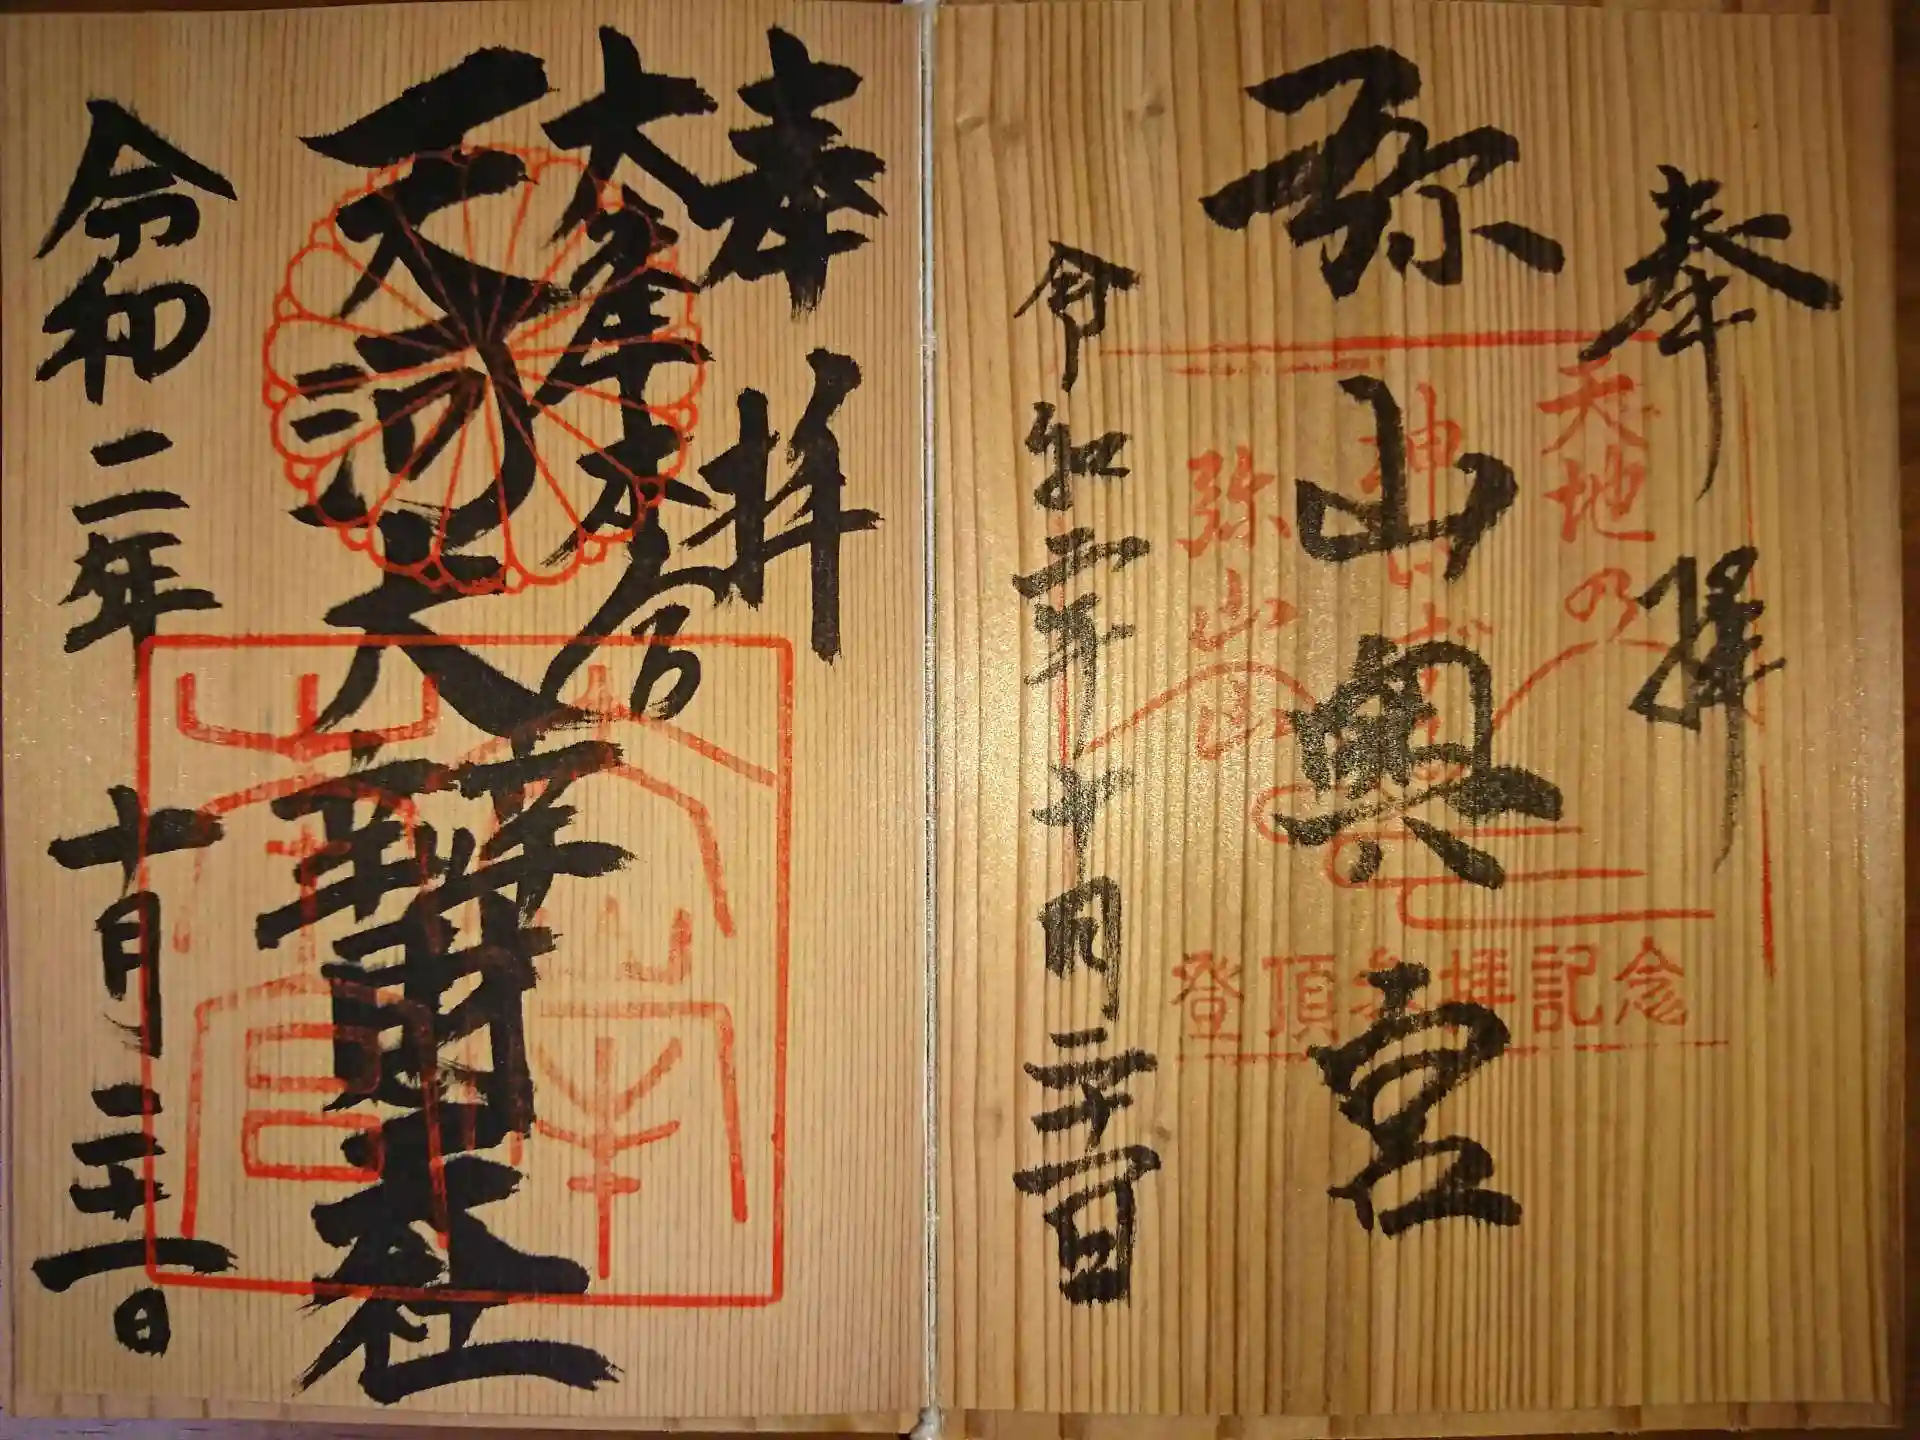 奉拜
弥山奥宮
令和二年十月二十一日
天地の
弥山
登頂参拝記念
奉拝
大峯本宮
天河大辨財天社
令和二年
十月二十一日